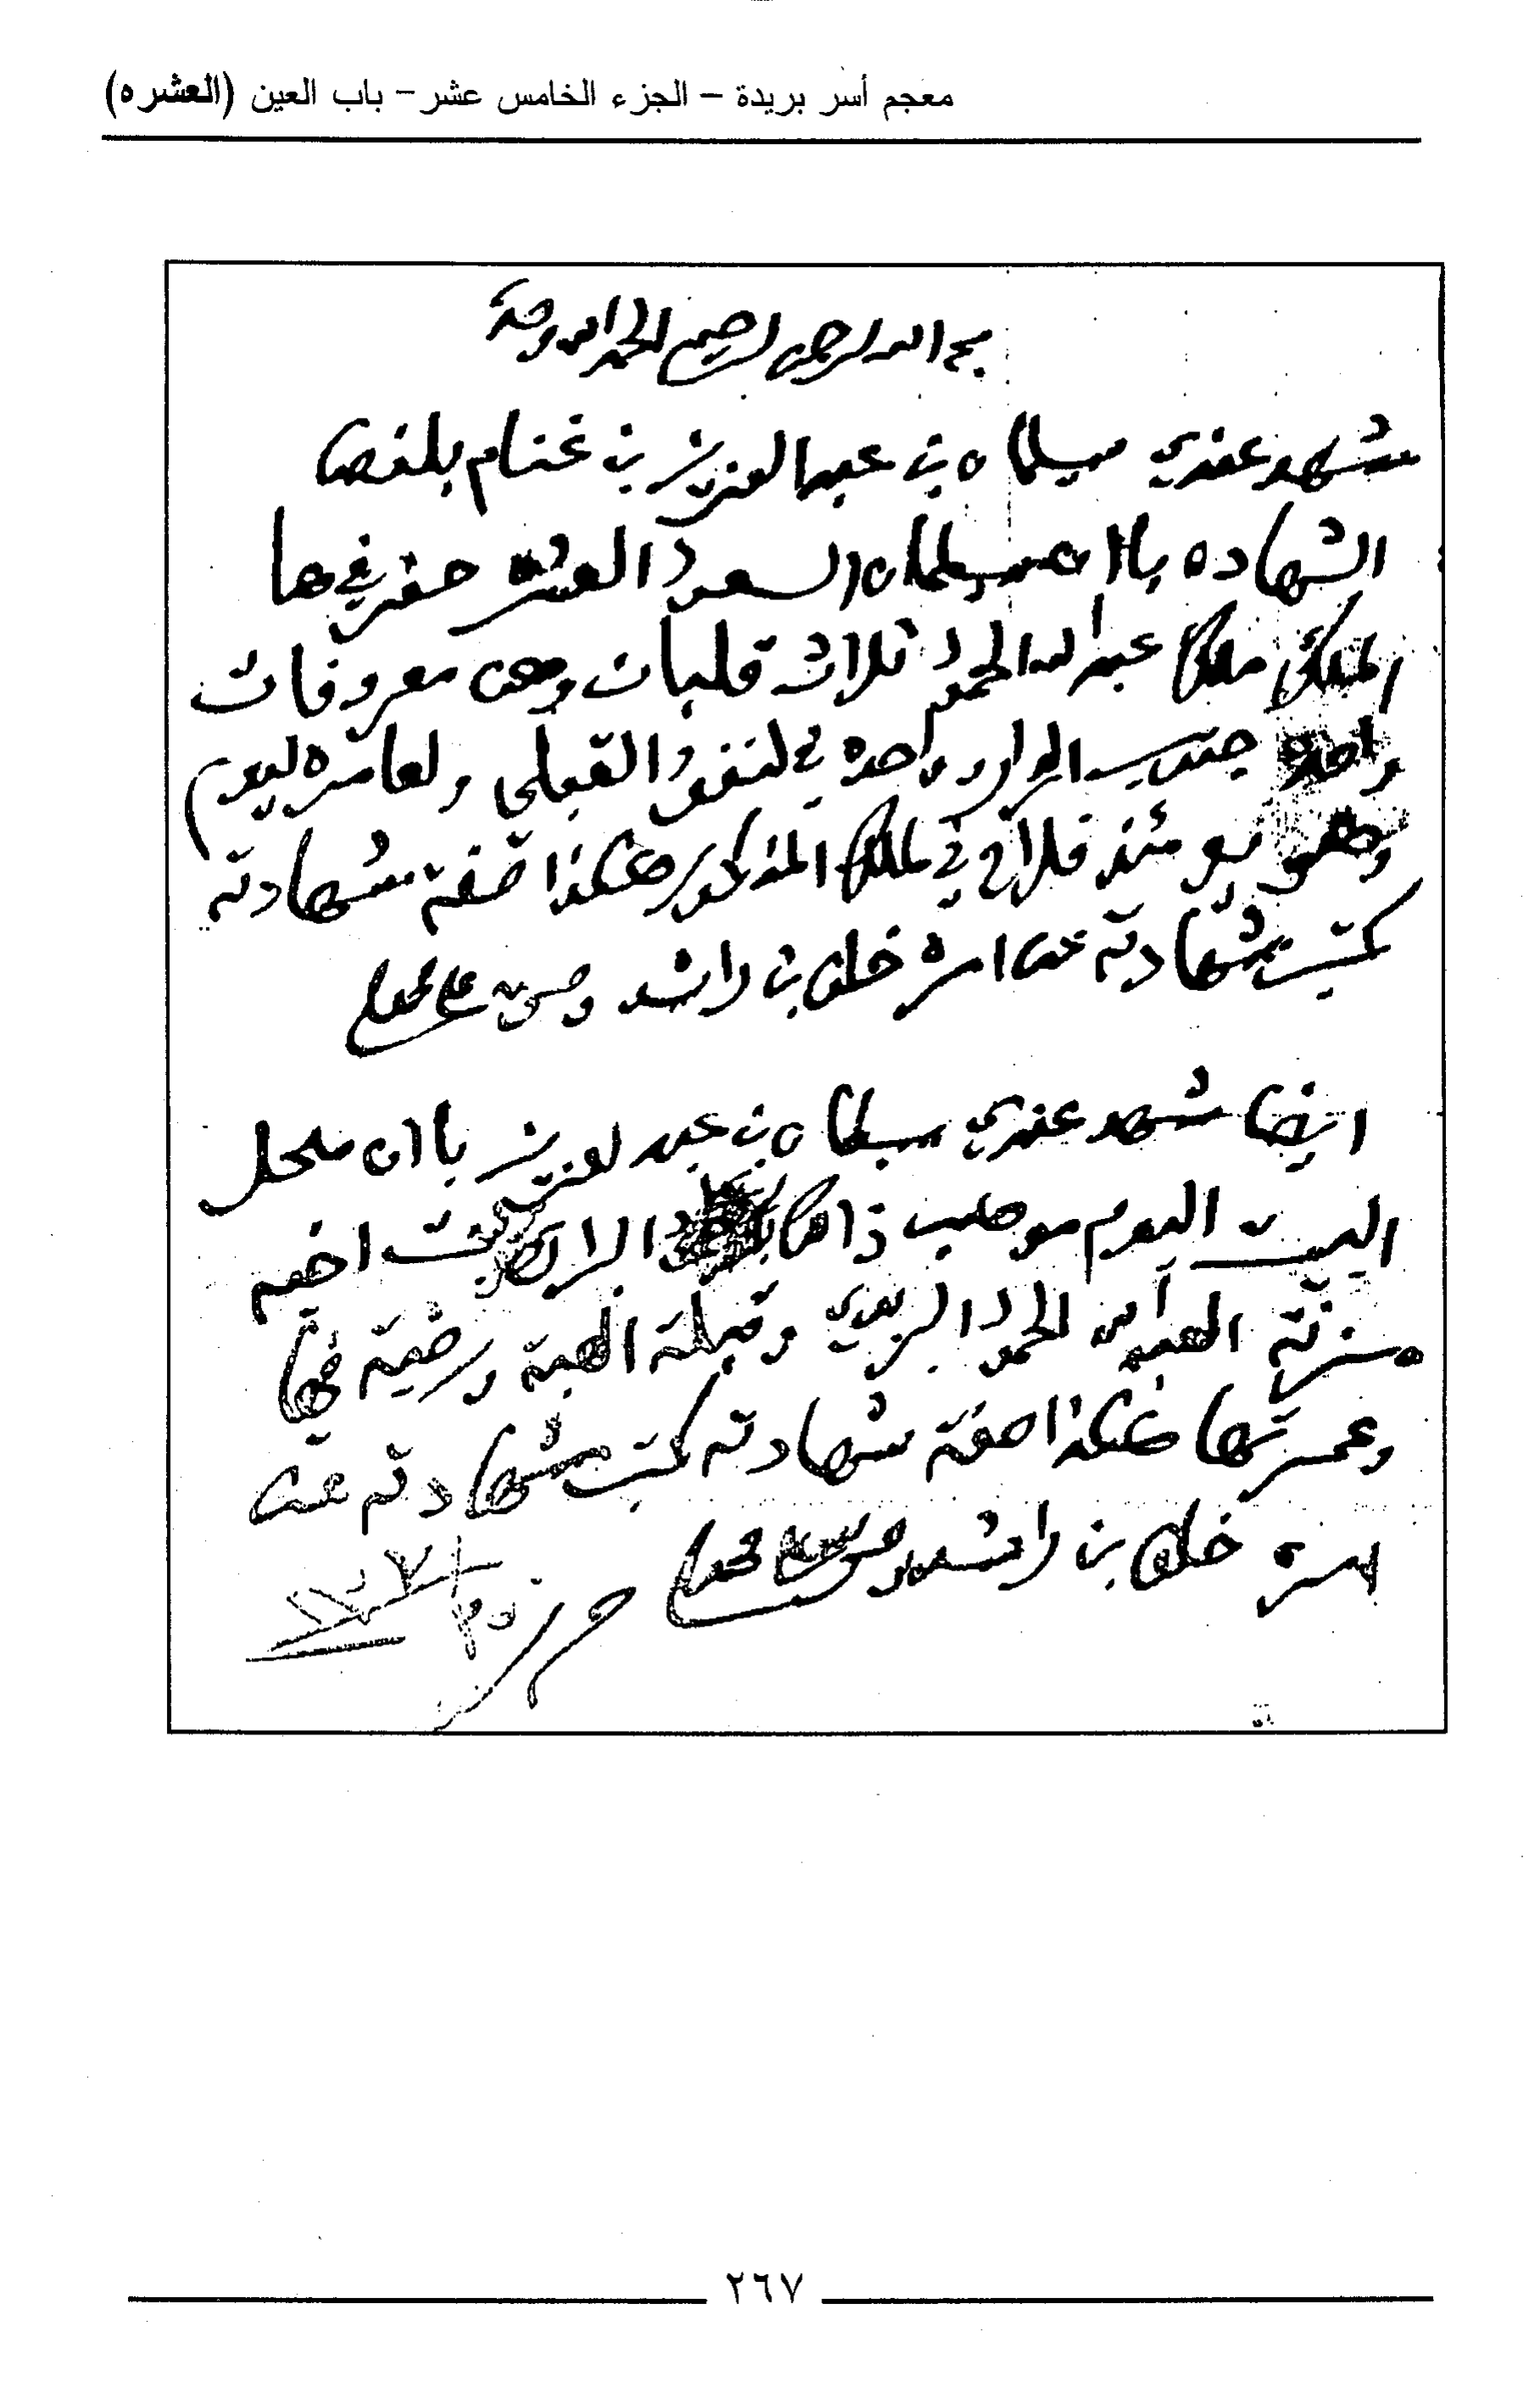 معجم أسر بريدة – الجزء الخامس عشر – باب العين (العشره)
بسم الله الرحمن الرحيم الحمد لله وحده
شهد عندي سليمان بن عبدالعزيز بن غنام بلفض
الشهاده باان سليمان السعود العشره حفر في ها
الملك ملك عبدالله الحمود ثلاث قلبان وهن معروفات
واحده جنوب الدار وواحده في لنفود القبلي ولعامره ليوم
وهو يومئذ فلاح في ملك المذكور هكذا صفة شهادته
كتب شهادته عن امره خلف بن راشد وصلى على محمد
ايضا شهد عندي سليمان بن عبدلعزيز باان محل
البيت اليوم موهب ذاهن اخيه
مزنه العبدالله الحمود البريدي وقبلة الهبة ورضية فيها
وعمرتها هكذا صفة شهادته كتب شهادته عن
امره خلف بن راشد وصلى الله على محمد
٢٦٧